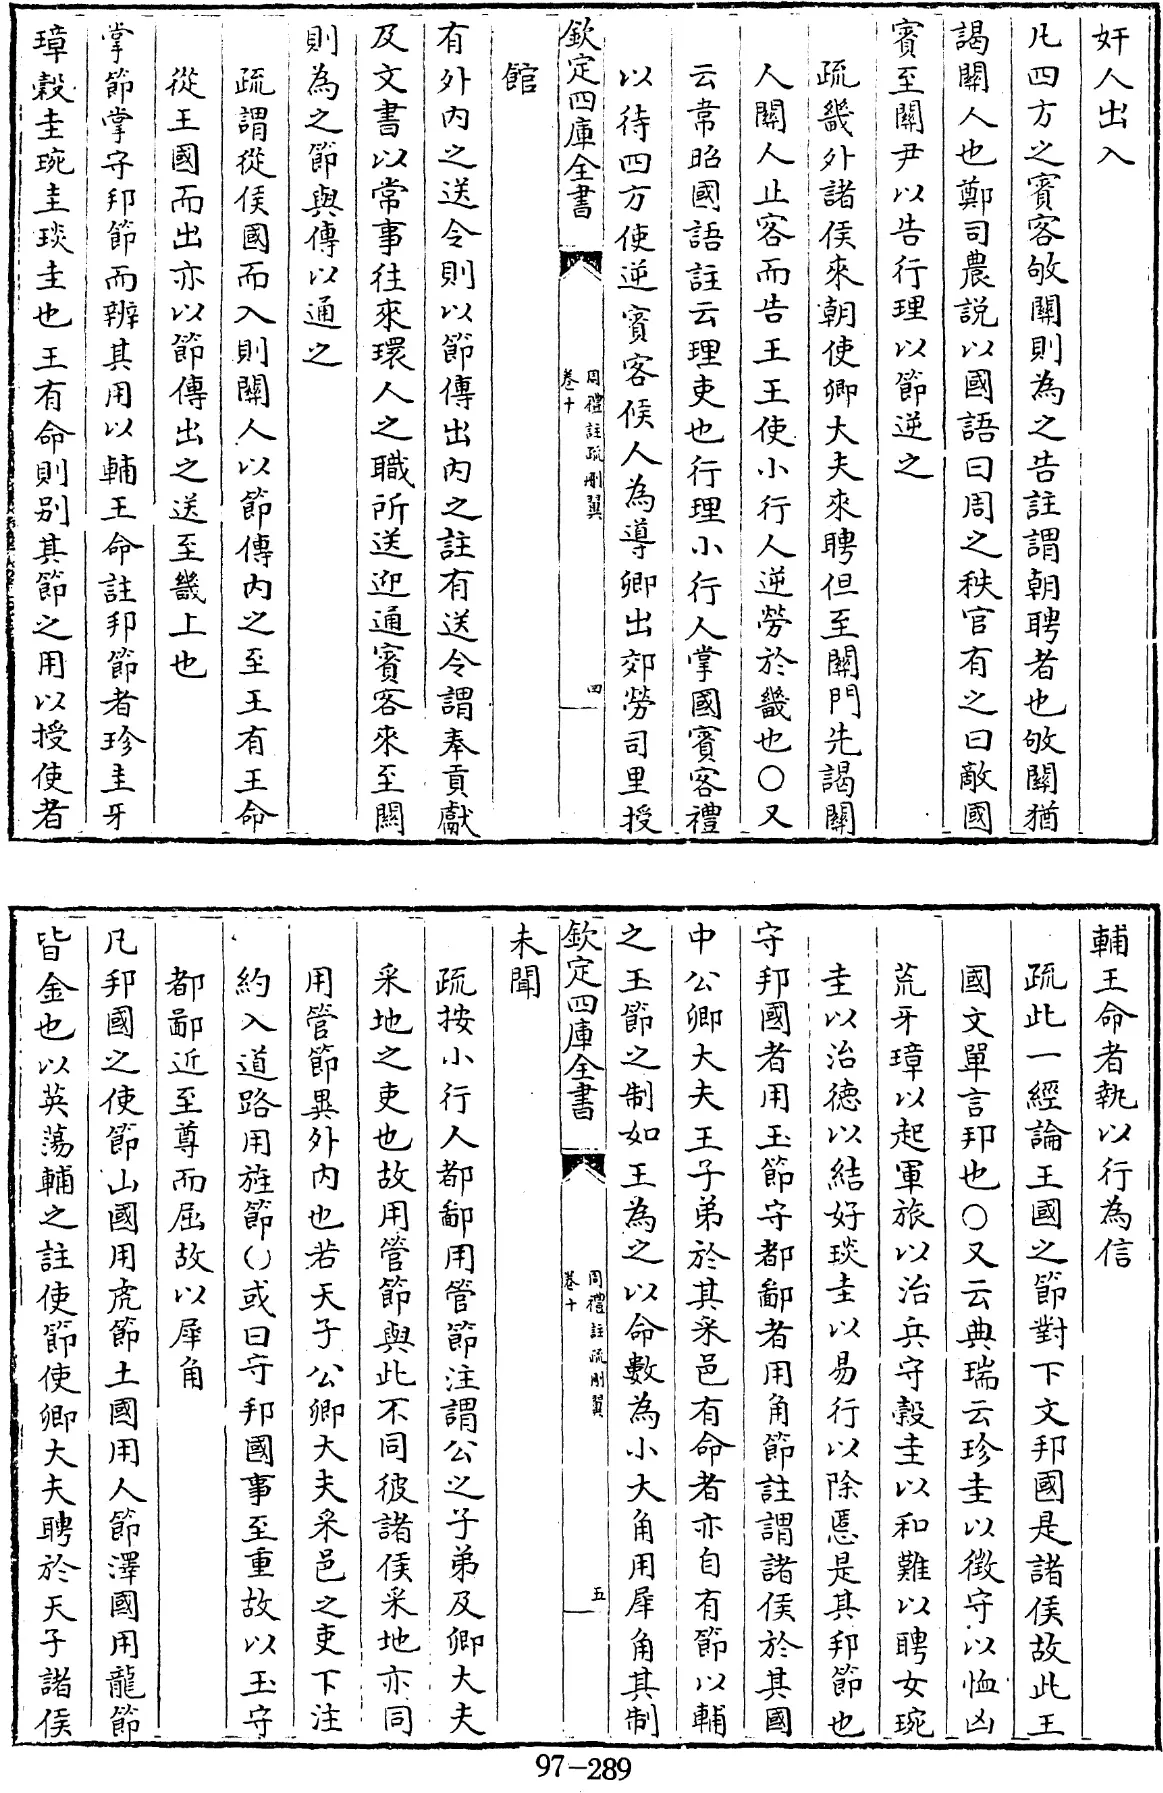 奸人出入
凡四方之賔客敂關則為之告註謂朝聘者也敂關猶
謁關人也鄭司農説以國語曰周之秩官有之曰敵國
賔至關尹以告行理以節逆之
疏畿外諸侯來朝使卿大夫來聘但至關門先謁關
人關人止客而告王王使小行人逆勞於畿也○又
云韋昭國語註云理吏也行理小行人掌國賔客禮
以待四方使逆賔客候人為導卿出郊勞司里授
欽定四庫全書
周禮註疏刪翼
卷十
四
館
有外内之送令則以節傳出内之註有送令謂奉貢獻
及文書以常事往來環人之職所送迎通賔客來至關
則為之節與傳以通之
疏謂從侯國而入則關人以節傳内之至王有王命
從王國而出亦以節傳出之送至畿上也
掌節掌守邦節而辨其用以輔王命註邦節者珍圭牙
璋穀圭琬圭琰圭也王有命則别其節之用以授使者
輔王命者執以行為信
疏此一經論王國之節對下文邦國是諸侯故此王
國文單言邦也○又云典瑞云珍圭以徵守以恤凶
荒牙璋以起軍旅以治兵守榖圭以和難以聘女琬
圭以治德以結好琰圭以易行以除慝是其邦節也
守邦國者用玉節守都鄙者用角節註謂諸侯於其國
中公卿大夫王子弟於其采邑有命者亦自有節以輔
之玉節之制如王為之以命數為小大角用犀角其制
欽定四庫全書
周禮註疏刪翼
卷十
五
未聞
疏按小行人都鄙用管節注謂公之子弟及卿大夫
采地之吏也故用管節與此不同彼諸侯采地亦同
用管節異外内也若天子公卿大夫采邑之吏下注
約入道路用旌節○或曰守邦國事至重故以玉守
都鄙近至尊而屈故以犀角
凡邦國之使節山國用虎節土國用人節澤國用龍節
皆金也以英蕩輔之註使節使卿大夫聘於天子諸侯
97-289